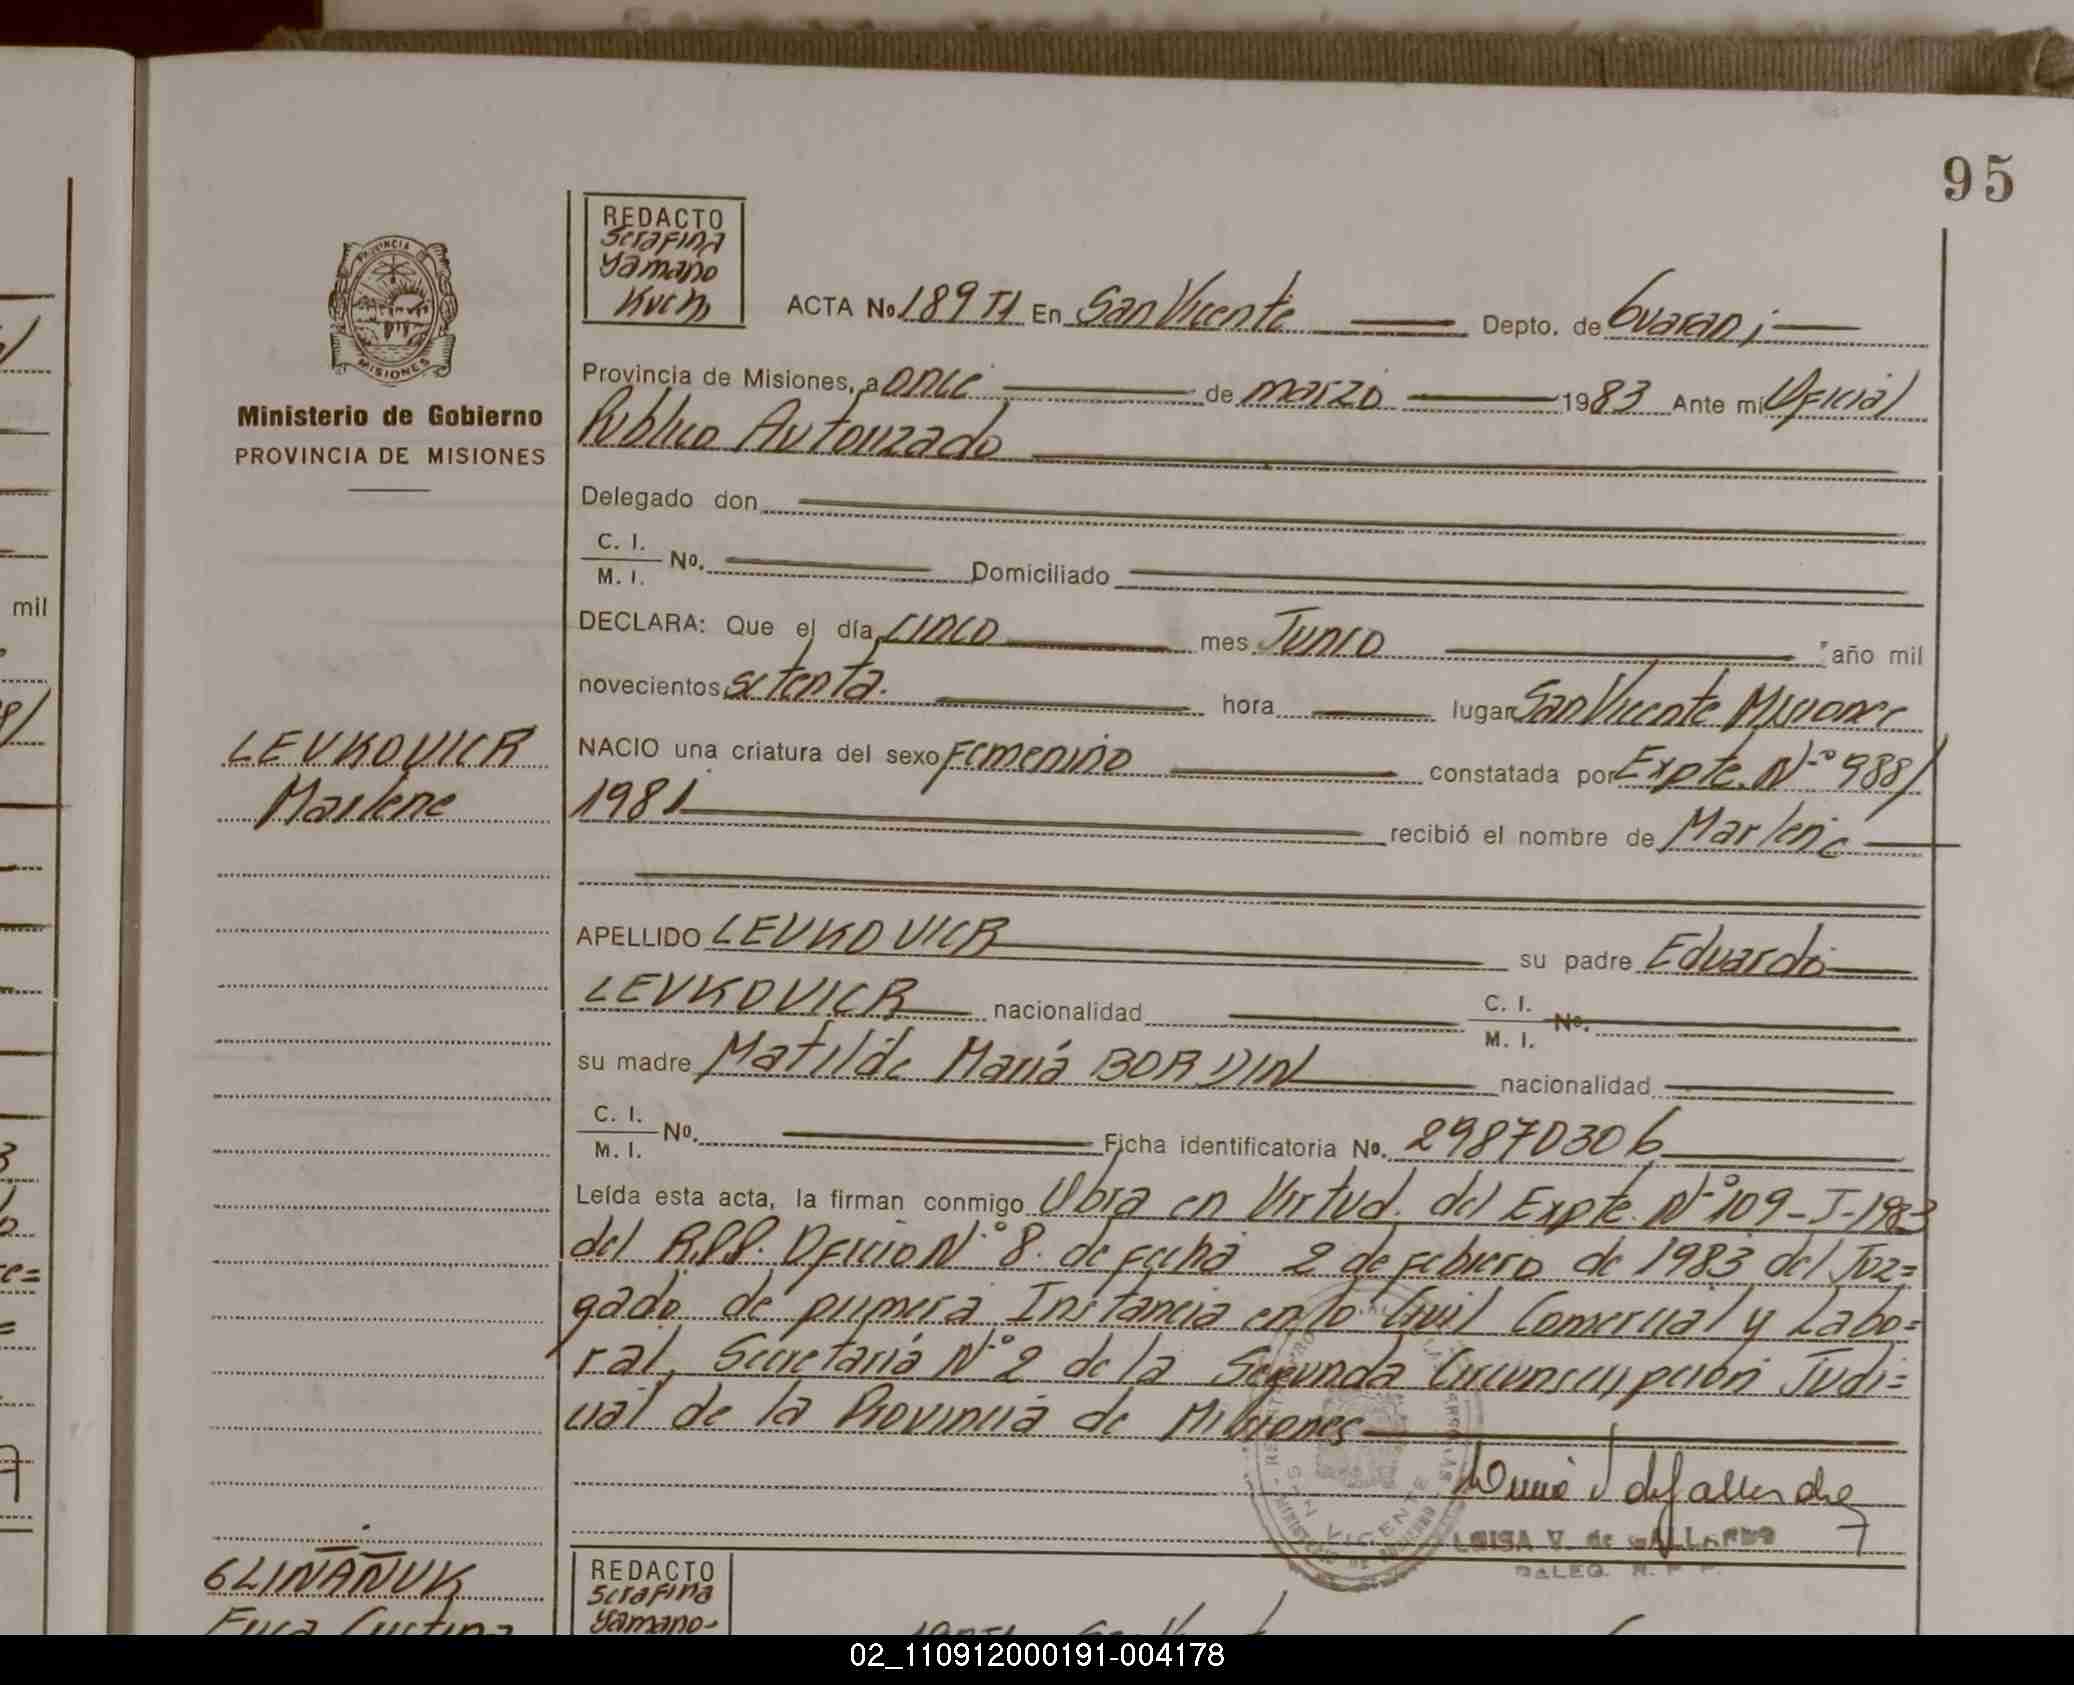 95
REDACTO
Serafina
Yamano
Kuch
ACTA No 189 TI En San Vicente Depto. de Guarani
PROVINCIA DE MISIONES
Provincia de Misiones, a once de marzo 1983 Ante mi Oficial
Público Autorizado
Ministerio de Gobierno
PROVINCIA DE MISIONES
Delegado don
C. I.
M. I. No. Domiciliado
DECLARA: Que el día cinco mes Junio año mil
novecientos setenta. hora lugar San Vicente Misiones
NACIO una criatura del sexo Femenino constatada por Expte. N° 988/
1981 recibió el nombre de Marlene
LEVKOVICR
Marlene
APELLIDO LEVKOVICR su padre Eduardo
LEVKOVICR nacionalidad C. I.
M. I. No.
su madre Matilde María BORDIN nacionalidad
C. I.
M. I. No. Ficha identificatoria No. 29870306
Leída esta acta, la firman conmigo Obra en Virtud. del Expte. N° 109-J-1983
del R.P.P. Oficio N° 8. de fecha 2 de Febrero de 1983 del Juz=
gado de primera Instancia en lo Civil Comercial y Labo=
ral, Secretaría N° 2 de la Segunda Circunscripción Judi=
cial de la Provincia de Misiones
SAN VICENTE
LUISA V. de GALLARDO
DALEG. R. P. P.
mil
GLINAÑUK
REDACTO
Serafina
Yamano-
02_110912000191-004178